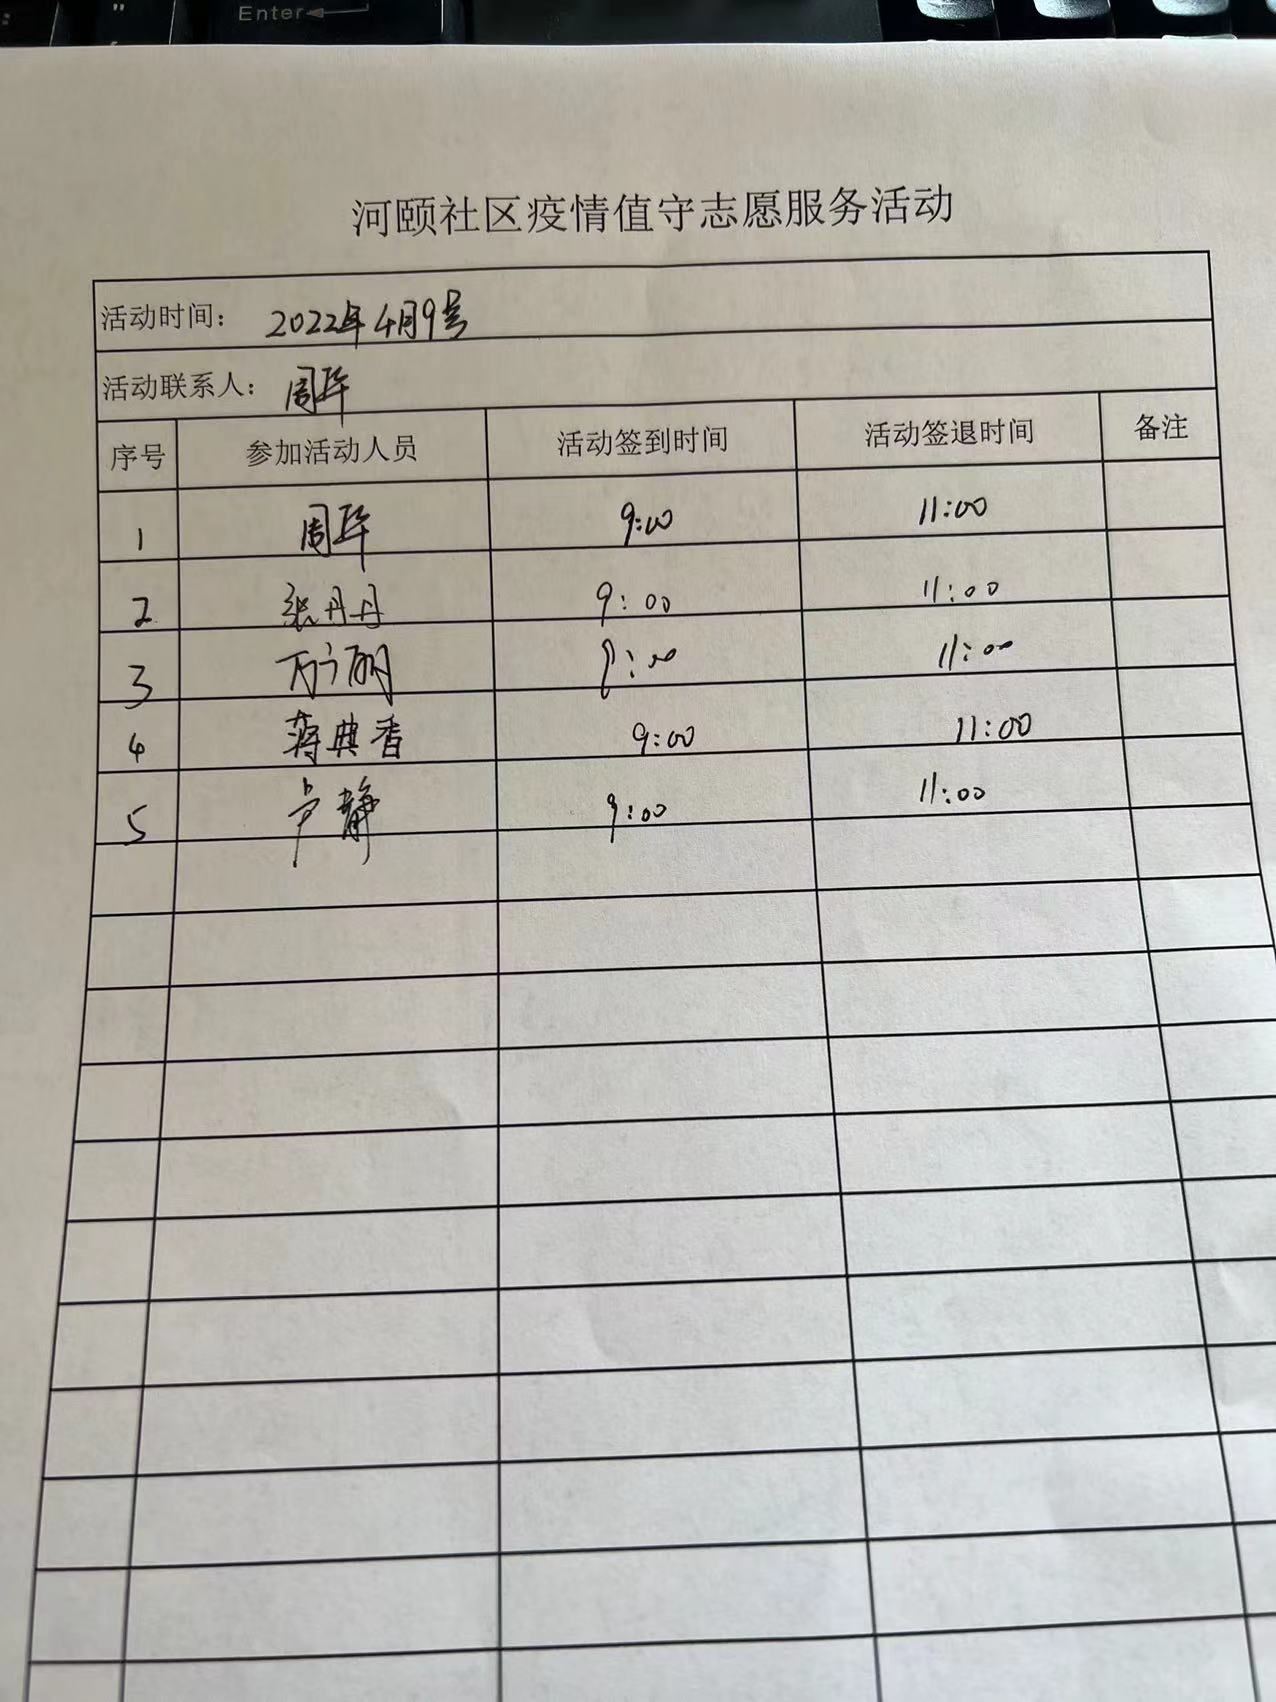 Enter
河颐社区疫情值守志愿服务活动
活动时间: 2022年4月9号
活动联系人: 周华
序号 参加活动人员 活动签到时间 活动签退时间 备注
1 周华 9:00 11:00
2 张丹丹 9:00 11:00
3 万丽 9:00 11:00
4 蒋典香 9:00 11:00
5 卢静 9:00 11:00